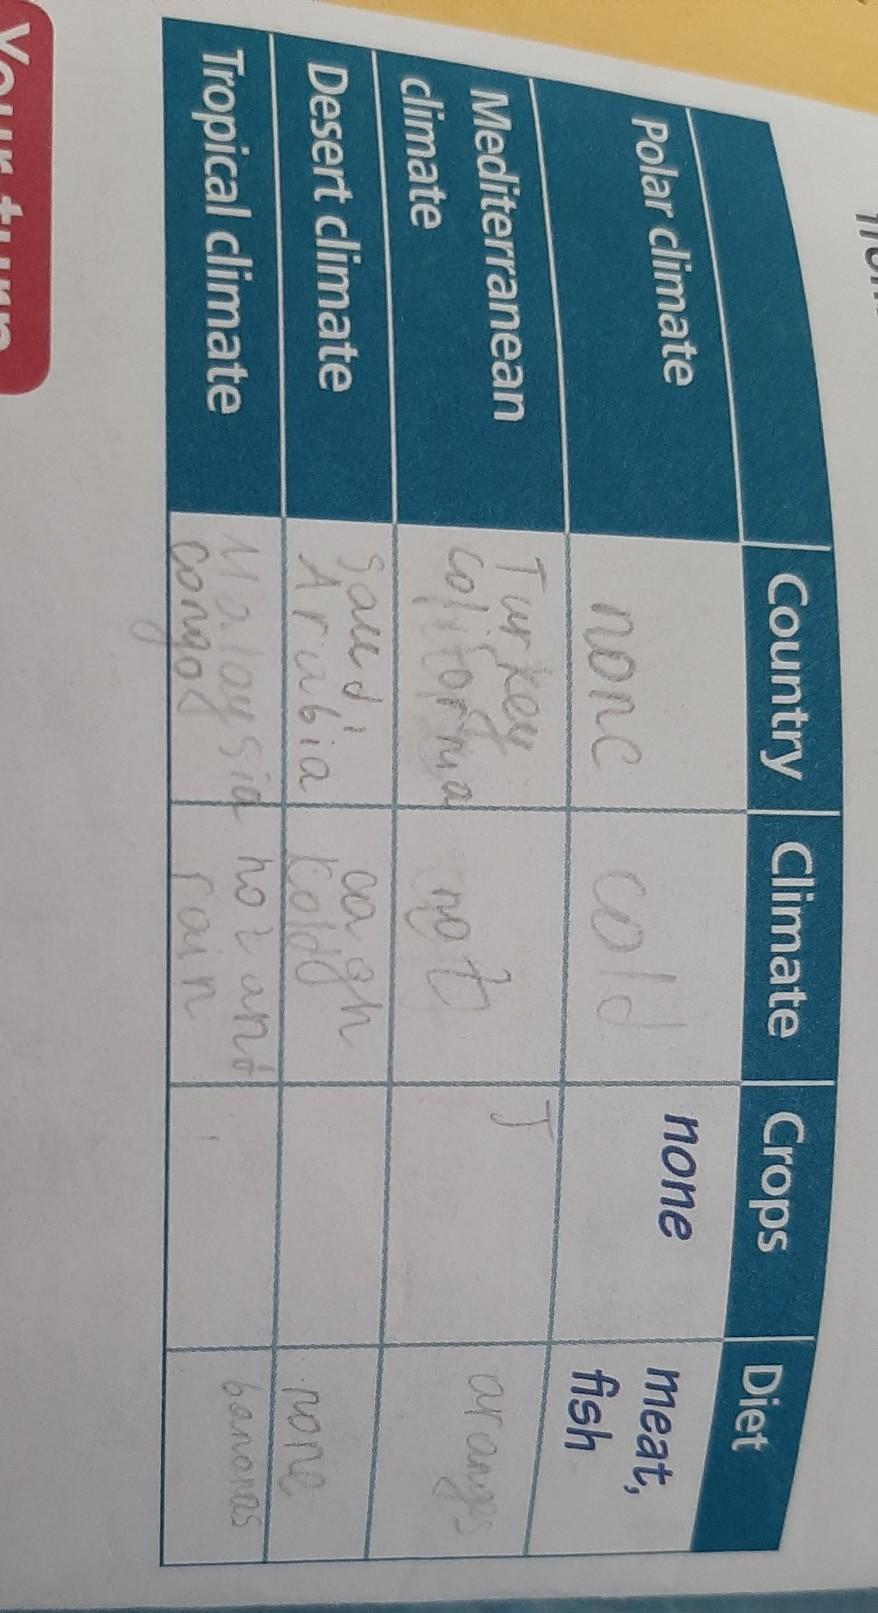 Country Climate Crops Diet
Polar climate none cold none meat,
fish
Mediterranean Turkey hot J oranges
climate california
Desert climate Saudi
Arabia cold none
Tropical climate Malaysia hot and bananas
congo rain
Your turn